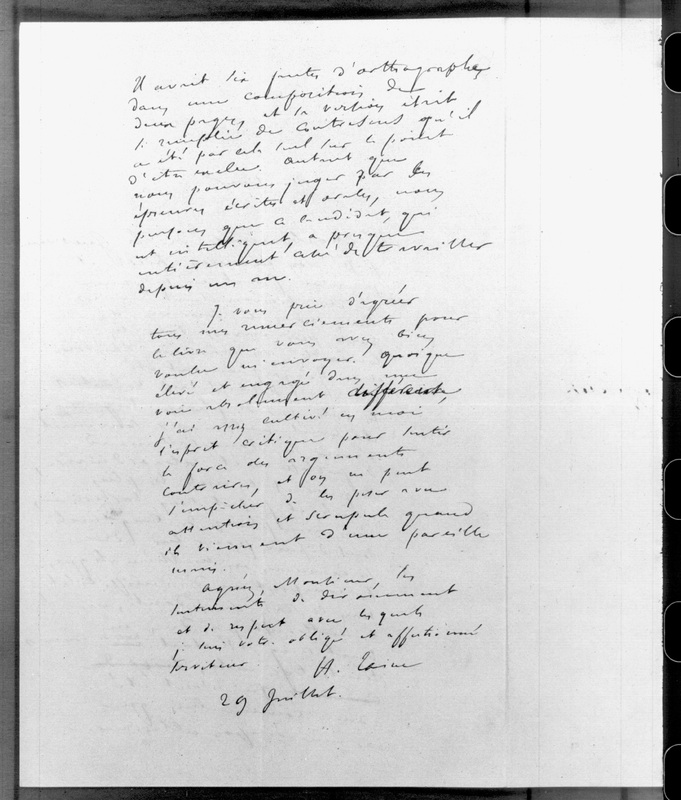 Il avait six fautes d'orthographe
dans une composition de
deux pages et la version était
si remplie de contresens qu'il
a été par cela seul sur le point
d'être exclu. Autant que
nous pouvons juger par les
épreuves écrites et orales, nous
pensons que ce candidat, qui
est intelligent, a presque
entièrement cessé de travailler
depuis un an.
Je vous prie d'agréer
tous mes remerciements pour
le livre que vous avez bien
voulu m'envoyer. Quoique
élevé et engagé dans une
voie absolument différente
j'ai assez cultivé en moi
l'esprit critique pour sentir
la force des arguments
contraires, et on ne peut
s'empêcher de les peser avec
attention et scrupule quand
ils viennent d'une pareille
main.
Agréez, Monsieur, les
sentiments de dévouement
et de respect avec lesquels
je suis votre obligé et affectionné
serviteur. H. Taine
29 Juillet.